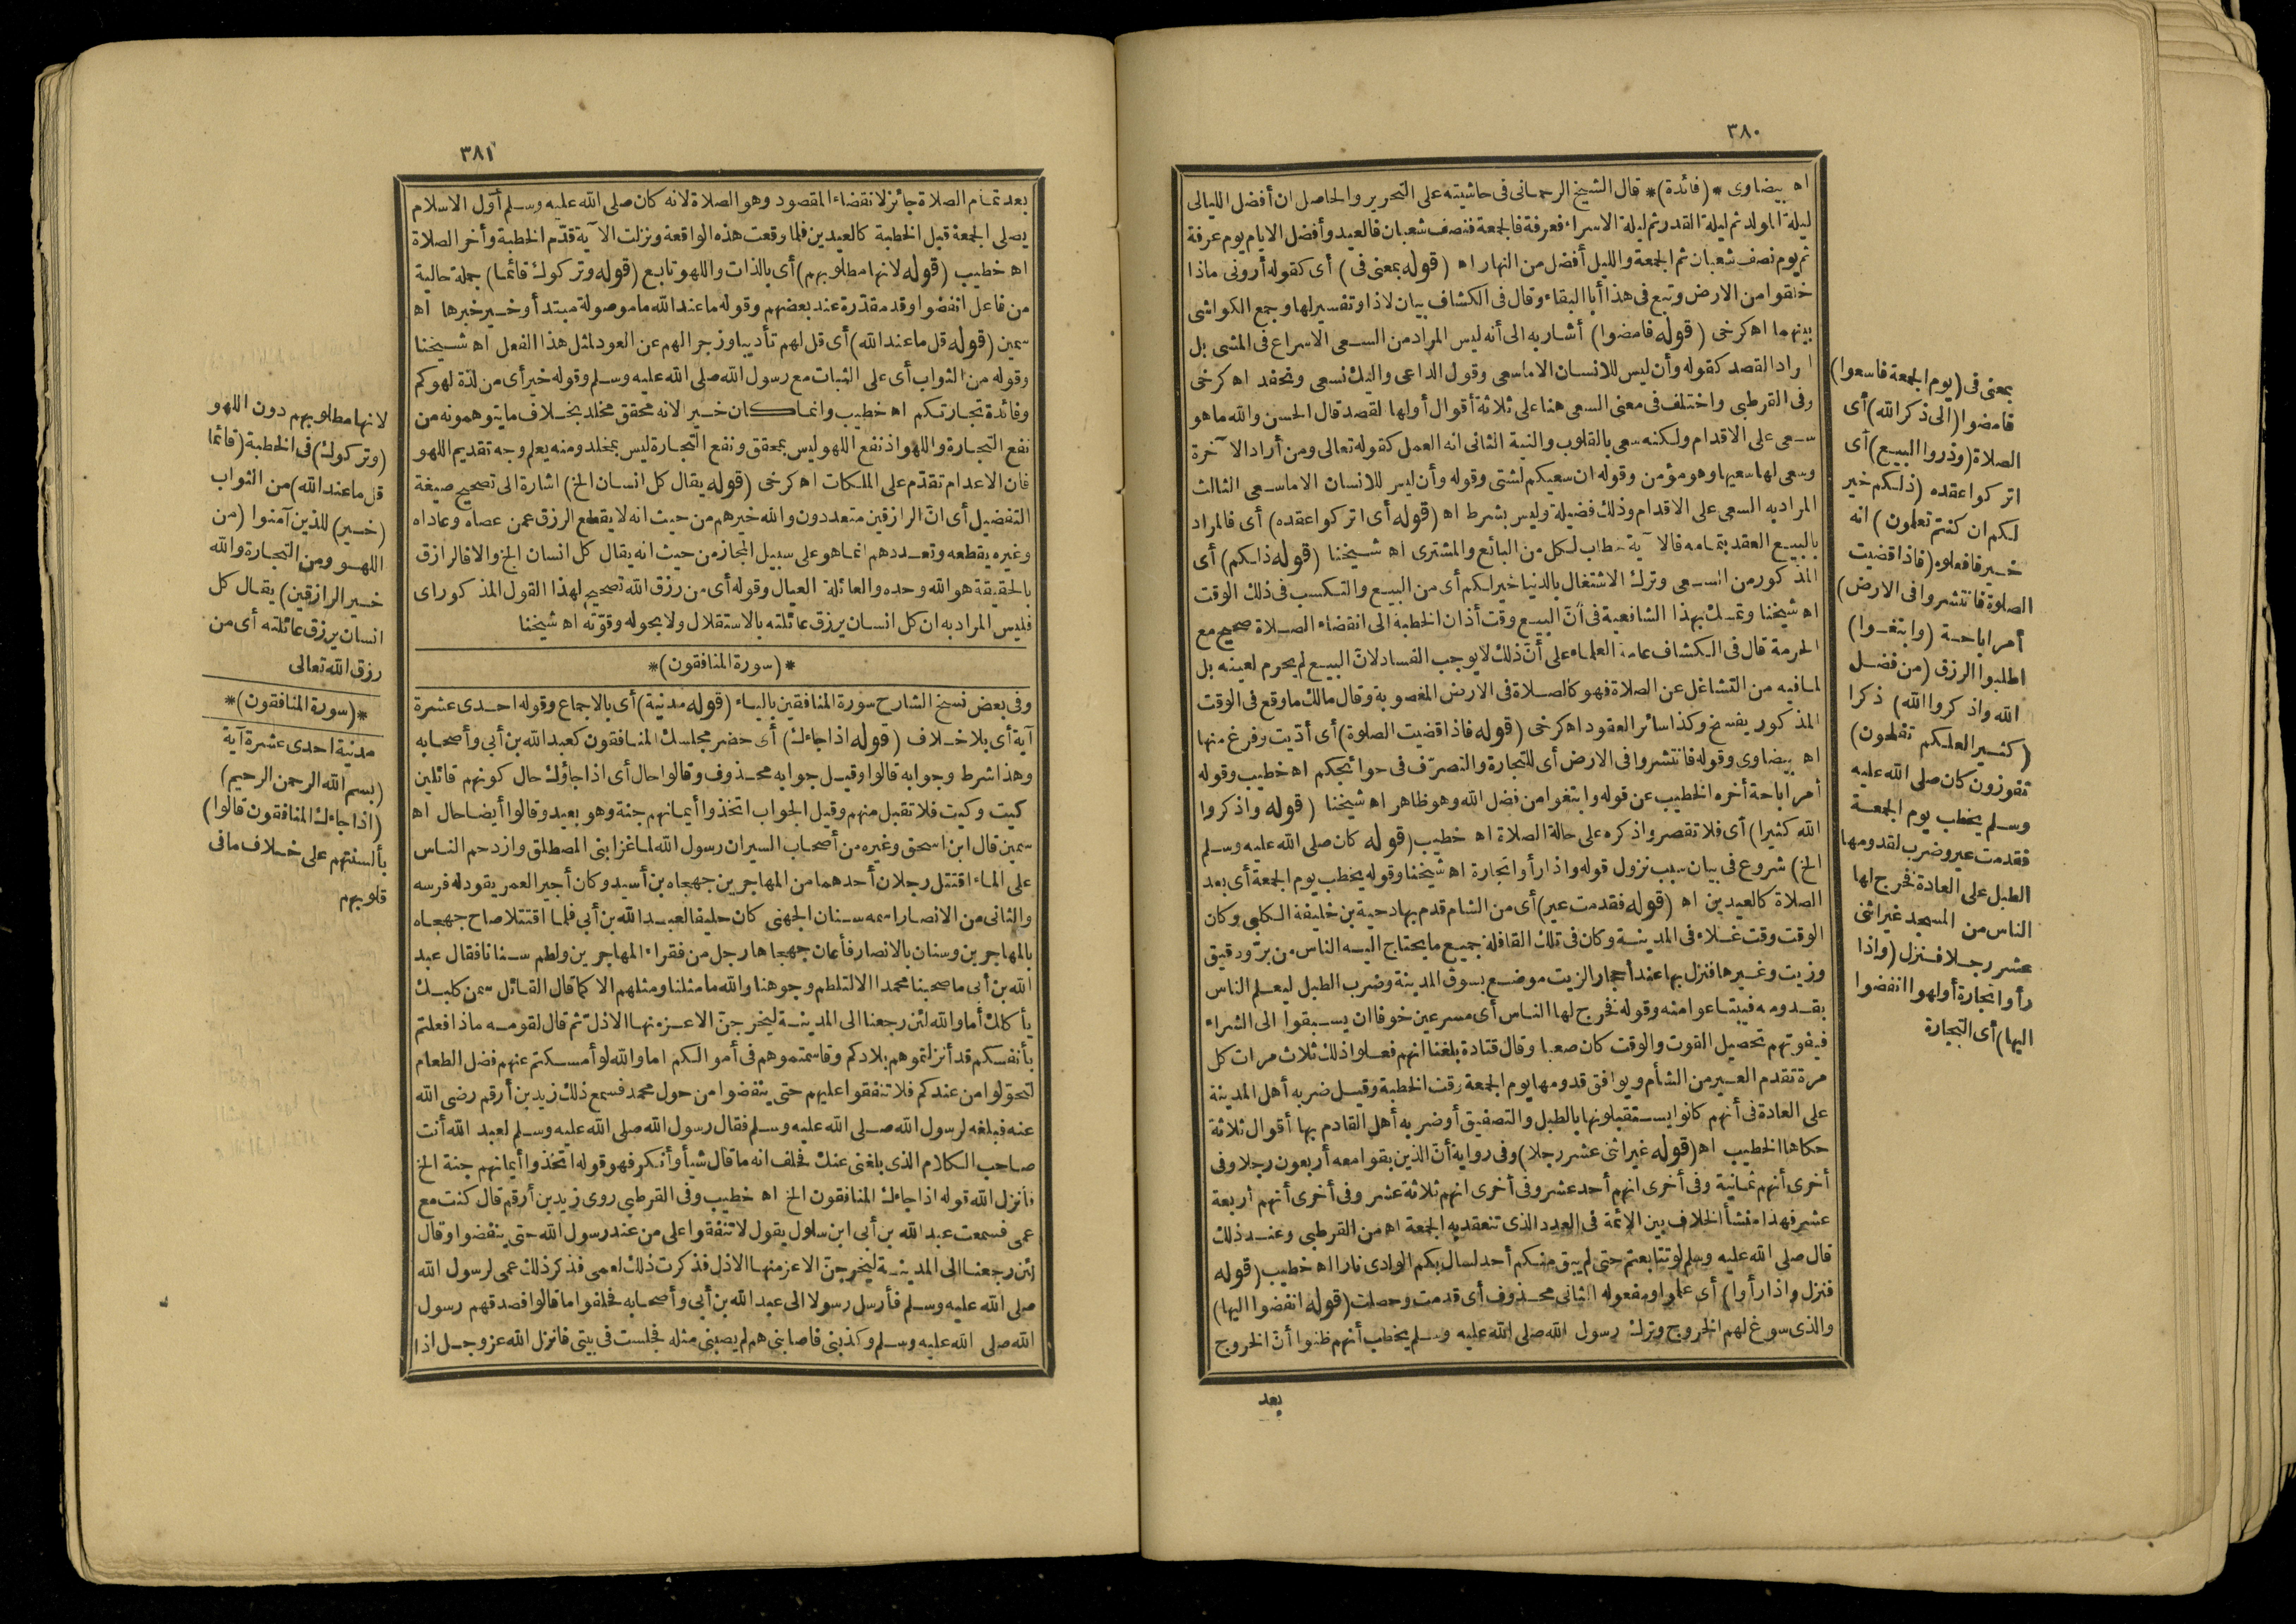 ٣٨٠
اه بيضاوى *(فائدة)* قال الشيخ الرحمانى فى حاشيته على التحرير والحاصل ان أفضل الليالى
ليلة المولد ثم ليلة القدر ثم ليلة الاسراء فعرفة فالجمعة فنصف شعبان فالعيد وأفضل الايام يوم عرفة
ثم يوم نصف شعبان ثم الجمعة والليل أفضل من النهار اه (قوله بمعنى فى) أى كقوله أرونى ماذا
خلقوا من الارض وتبع فى هذا أبا البقاء وقال فى الكشاف بيان لاذا وتفسير لها وجمع الكواشى
بينهما اه كرخى (قوله فامضوا) أشار به الى أنه ليس المراد من السعى الاسراع فى المشى بل
اراد القصد كقوله وأن ليس للانسان الا ما سعى وقول الداعى واليك نسعى ونحفد اه كرخى
وفى القرطبى واختلف فى معنى السعى هنا على ثلاثة أقوال أولها القصد قال الحسن والله ما هو
سعى على الاقدام ولكنه سعى بالقلوب والنية الثانى انه العمل كقوله تعالى ومن أراد الآخرة
وسعى لها سعيها وهو مؤمن وقوله ان سعيكم لشتى وقوله وأن ليس للانسان الا ما سعى الثالث
المراد به السعى على الاقدام وذلك فضيلة وليس بشرط اه (قوله أى اتركوا عقده) أى فالمراد
بالبيع العقد بتمامه فالآية خطاب لكل من البائع والمشترى اه شيخنا (قوله ذلكم) أى
المذكور من السعى وترك الاشتغال بالدنيا خير لكم أى من البيع والتكسب فى ذلك الوقت
اه شيخنا وتمسك بهذا الشافعية فى أنّ البيع وقت أذان الخطبة الى انقضاء الصلاة صحيح مع
الحرمة قال فى الكشاف عامة العلماء على أنّ ذلك لا يوجب الفساد لانّ البيع لم يحرم لعينه بل
لما فيه من التشاغل عن الصلاة فهو كالصلاة فى الارض المغصوبة وقال مالك ما وقع فى الوقت
المذكور يفسخ وكذا سائر العقود اه كرخى (قوله فاذا قضيت الصلوة) أى أدّيت وفرغ منها
اه بيضاوى وقوله فانتشروا فى الارض أى للتجارة والتصرّف فى حوائجكم اه خطيب وقوله
أمر اباحة أخره الخطيب عن قوله وابتغوا من فضل الله وهو ظاهر اه شيخنا (قوله واذكروا
الله كثيرا) أى فلا تقصروا ذكره على حالة الصلاة اه خطيب (قوله كان صلى الله عليه وسلم
الخ) شروع فى بيان سبب نزول قوله واذا رأوا تجارة اه شيخنا وقوله يخطب يوم الجمعة أى بعد
الصلاة كالعيدين اه (قوله فقدمت عير) أى من الشام قدم بها دحية بن خليفة الكلبى وكان
الوقت وقت غلاء فى المدينة وكان فى تلك القافلة جميع ما يحتاج اليه الناس من برّ ودقيق
وزيت وغيرها فنزل بها عند أحجار الزيت موضع بسوق المدينة وضرب الطبل ليعلم الناس
بقدومه فيبتاعوا منه وقوله فخرج لها الناس أى مسرعين خوفا ان يسبقوا الى الشراء
فيفوتهم تحصيل القوت والوقت كان صعبا وقال قتادة بلغنا انهم فعلوا ذلك ثلاث مرات كل
مرة تقدم العير من الشأم ويوافق قدومها يوم الجمعة وقت الخطبة وقيل ضربه أهل المدينة
على العادة فى أنهم كانوا يستقبلونها بالطبل والتصفيق أو ضربه أهل القادم بها أقوال ثلاثة
حكاها الخطيب اه (قوله غير اثنى عشر رجلا) وفى رواية أنّ الذين بقوا معه أربعون رجلا وفى
أخرى أنهم ثمانية وفى أخرى انهم أحد عشر وفى أخرى انهم ثلاثة عشر وفى أخرى أنهم أربعة
عشر فهذا منشأ الخلاف بين الائمة فى العدد الذى تنعقد به الجمعة اه من القرطبى وعند ذلك
قال صلى الله عليه وسلم لو تتابعتم حتى لم يبق منكم أحد لسال بكم الوادى نارا اه خطيب (قوله
فنزل واذا رأوا) أى علموا ومفعوله الثانى محذوف أى قدمت وحصلت (قوله انفضوا اليها)
والذى سوغ لهم الخروج وترك رسول الله صلى الله عليه وسلم يخطب أنهم ظنوا أنّ الخروج
بعد
بمعنى فى (يوم الجمعة فاسعوا)
فامضوا (الى ذكر الله) أى
الصلاة (وذروا البيع) أى
اتركوا عقده (ذلكم خير
لكم ان كنتم تعلمون) انه
خير فافعلوه (فاذا قضيت
الصلوة فانتشروا فى الارض)
أمر اباحة (وابتغوا)
اطلبوا الرزق (من فضل
الله واذكروا الله) ذكرا
(كثيرا لعلكم تفلحون)
تفوزون كان صلى الله عليه
وسلم يخطب يوم الجمعة
فقدمت عير وضرب لقدومها
الطبل على العادة فخرج لها
الناس من المسجد غير اثنى
عشر رجلا فنزل (واذا
رأوا تجارة أو لهوا انفضوا
اليها) أى التجارة
٣٨١
بعد تمام الصلاة جائز لانقضاء المقصود وهو الصلاة لانه كان صلى الله عليه وسلم أوّل الاسلام
يصلى الجمعة قبل الخطبة كالعيدين فلما وقعت هذه الواقعة ونزلت الآية قدّم الخطبة وأخر الصلاة
اه خطيب (قوله لانها مطلوبهم) أى بالذات واللهو تابع (قوله وتركوك قائما) جملة حالية
من فاعل انفضوا وقد مقدّرة عند بعضهم وقوله ما عند الله ما موصولة مبتدأ وخير خبرها اه
سمين (قوله قل ما عند الله) أى قل لهم تأديبا وزجرا لهم عن العود لمثل هذا الفعل اه شيخنا
وقوله من الثواب أى على الثبات مع رسول الله صلى الله عليه وسلم وقوله خير أى من لذة لهوكم
وفائدة تجارتكم اه خطيب وانما كان خيرا لانه محقق مخلد بخلاف ما يتوهمونه من
نفع التجارة واللهو اذ نفع اللهو ليس بمحقق ونفع التجارة ليس بمخلد ومنه يعلم وجه تقديم اللهو
فان الاعدام تقدّم على الملكات اه كرخى (قوله يقال كل انسان الخ) اشارة الى تصحيح صيغة
التفضيل أى انّ الرازقين متعددون والله خيرهم من حيث انه لا يقطع الرزق عمن عصاه وعاداه
وغيره يقطعه وتعددهم انما هو على سبيل المجاز من حيث انه يقال كل انسان الخ والا فالرازق
بالحقيقة هو الله وحده والعائلة العيال وقوله أى من رزق الله تصحيح لهذا القول المذكور اى
فليس المراد به ان كل انسان يرزق عائلته بالاستقلال ولا بحوله وقوّته اه شيخنا
*(سورة المنافقون)*
وفى بعض نسخ الشارح سورة المنافقين بالياء (قوله مدنية) أى بالاجماع وقوله احدى عشرة
آية أى بلا خلاف (قوله اذا جاءك) أى حضر مجلسك المنافقون كعبد الله بن أبى وأصحابه
وهذا شرط وجوابه قالوا وقيل جوابه محذوف وقالوا حال أى اذا جاؤك حال كونهم قائلين
كيت وكيت فلا تقبل منهم وقيل الجواب اتخذوا أيمانهم جنة وهو بعيد وقالوا أيضا حال اه
سمين قال ابن اسحق وغيره من أصحاب السير ان رسول الله لما غزا بنى المصطلق وازدحم الناس
على الماء اقتتل رجلان أحدهما من المهاجرين جهجاه بن أسيد وكان أجير العمر يقود له فرسه
والثانى من الانصار اسمه سنان الجهنى كان حليفا لعبد الله بن أبى فلما اقتتلا صاح جهجاه
بالمهاجرين وسنان بالانصار فأعان جهجاها رجل من فقراء المهاجرين ولطم سنانا فقال عبد
الله بن أبى ما صحبنا محمدا الا لتلطم وجوهنا والله ما مثلنا ومثلهم الا كما قال القائل سمن كلبك
يأكلك أما والله لئن رجعنا الى المدينة ليخرجنّ الاعز منها الاذلّ ثم قال لقومه ماذا فعلتم
بأنفسكم قد أنزلتموهم بلادكم وقاسمتموهم فى أموالكم اما والله لو أمسكتم عنهم فضل الطعام
لتحوّلوا من عندكم فلا تنفقوا عليهم حتى ينفضوا من حول محمد فسمع ذلك زيد بن أرقم رضى الله
عنه فبلغه لرسول الله صلى الله عليه وسلم فقال رسول الله صلى الله عليه وسلم لعبد الله أنت
صاحب الكلام الذى بلغنى عنك فحلف انه ما قال شيأ وأنكر فهو قوله اتخذوا أيمانهم جنة الخ
فأنزل الله قوله اذا جاءك المنافقون الخ اه خطيب وفى القرطبى روى زيد بن أرقم قال كنت مع
عمى فسمعت عبد الله بن أبى ابن سلول يقول لا تنفقوا على من عند رسول الله حتى ينفضوا وقال
لئن رجعنا الى المدينة ليخرجنّ الاعز منها الاذل فذكرت ذلك لعمى فذكر ذلك عمى لرسول الله
صلى الله عليه وسلم فأرسل رسولا الى عبد الله بن أبى وأصحابه فحلفوا ما قالوا فصدقهم رسول
الله صلى الله عليه وسلم وكذبنى فاصابنى هم لم يصبنى مثله فجلست فى بيتى فانزل الله عز وجل اذا
لانها مطلوبهم دون اللهو
(وتركوك) فى الخطبة (قائما
قل ما عند الله) من الثواب
(خير) للذين آمنوا (من
اللهو ومن التجارة والله
خير الرازقين) يقال كل
انسان يرزق عائلته أى من
رزق الله تعالى
*(سورة المنافقون)*
مدنية احدى عشرة آية
(بسم الله الرحمن الرحيم)
(اذا جاءك المنافقون قالوا)
بألسنتهم على خلاف ما فى
قلوبهم